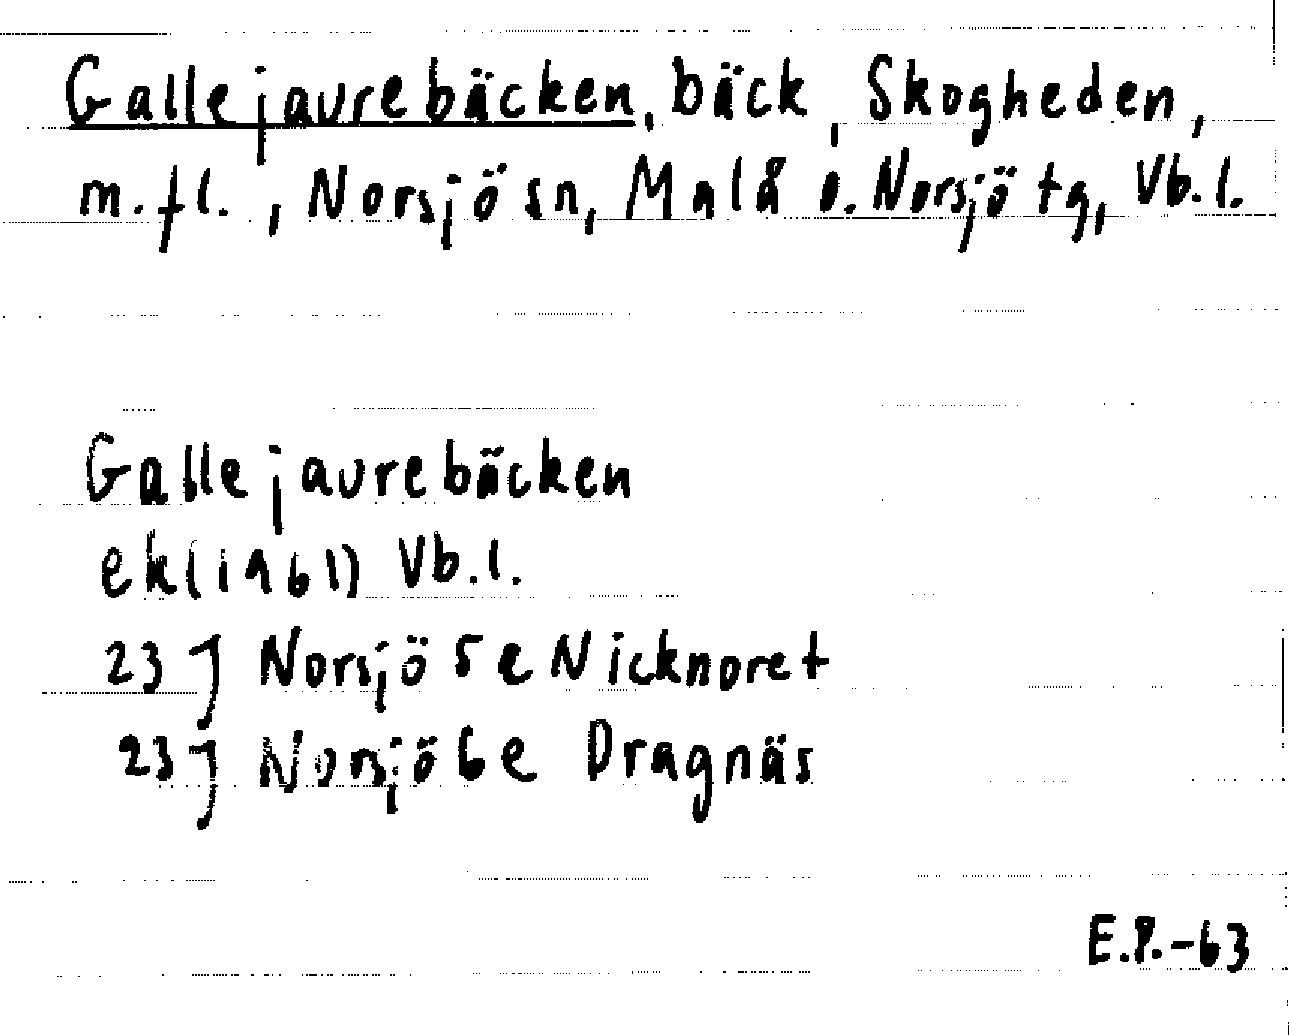 Gallejaurebäcken, bäck, Skogheden,
m.fl., Norsjö sn, Malå o. Norsjö tg, Vb.l.
Gallejaurebäcken
ek(1961) Vb.l.
23J Norsjö 5e Nicknoret
23J Norsjö 6e Dragnäs
E.P.-63